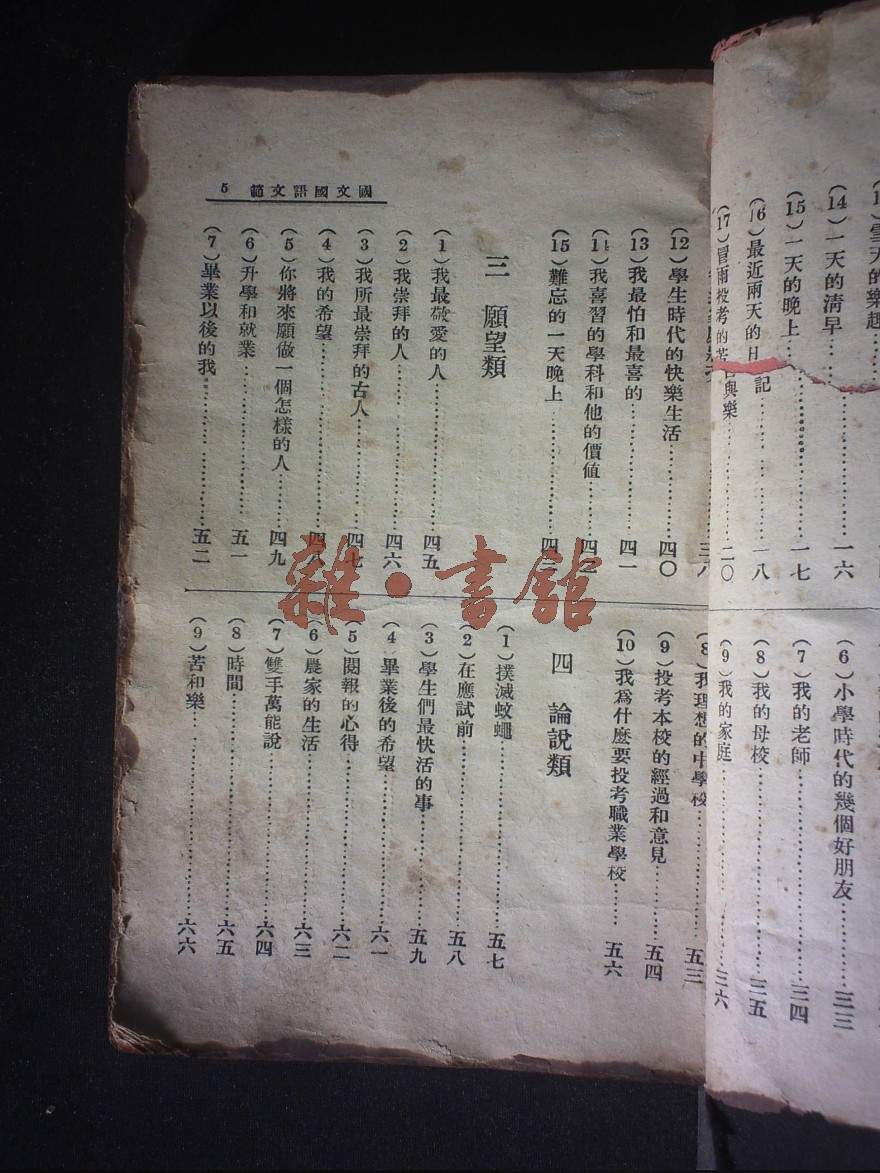 雪天的樂趣
(14)一天的清早……一六
(15)一天的晚上……一七
(16)最近兩天的日記……一八
(17)冒雨投考的苦與樂……二〇
(6)小學時代的幾個好朋友……三三
(7)我的老師……三四
(8)我的母校……三五
(9)我的家庭……三六
國文國語文範 5
三八
(12)學生時代的快樂生活……四〇
(13)我最怕和最喜的……四一
(11)我喜習的學科和他的價值……四
(15)難忘的一天晚上……四
三 願望類
(1)我最敬愛的人……四五
(2)我崇拜的人……四六
(3)我所最崇拜的古人……四七
(4)我的希望……四八
(5)你將來願做一個怎樣的人……四九
(6)升學和就業……五一
(7)畢業以後的我……五二
(8)我理想的中學校……五三
(9)投考本校的經過和意見……五四
(10)我爲什麼要投考職業學校……五六
四 論說類
(1)撲滅蚊蠅……五七
(2)在應試前……五八
(3)學生們最快活的事……五九
(4)畢業後的希望……六一
(5)閱報的心得……六二
(6)農家的生活……六三
(7)雙手萬能說……六四
(8)時間……六五
(9)苦和樂……六六
雜·書館